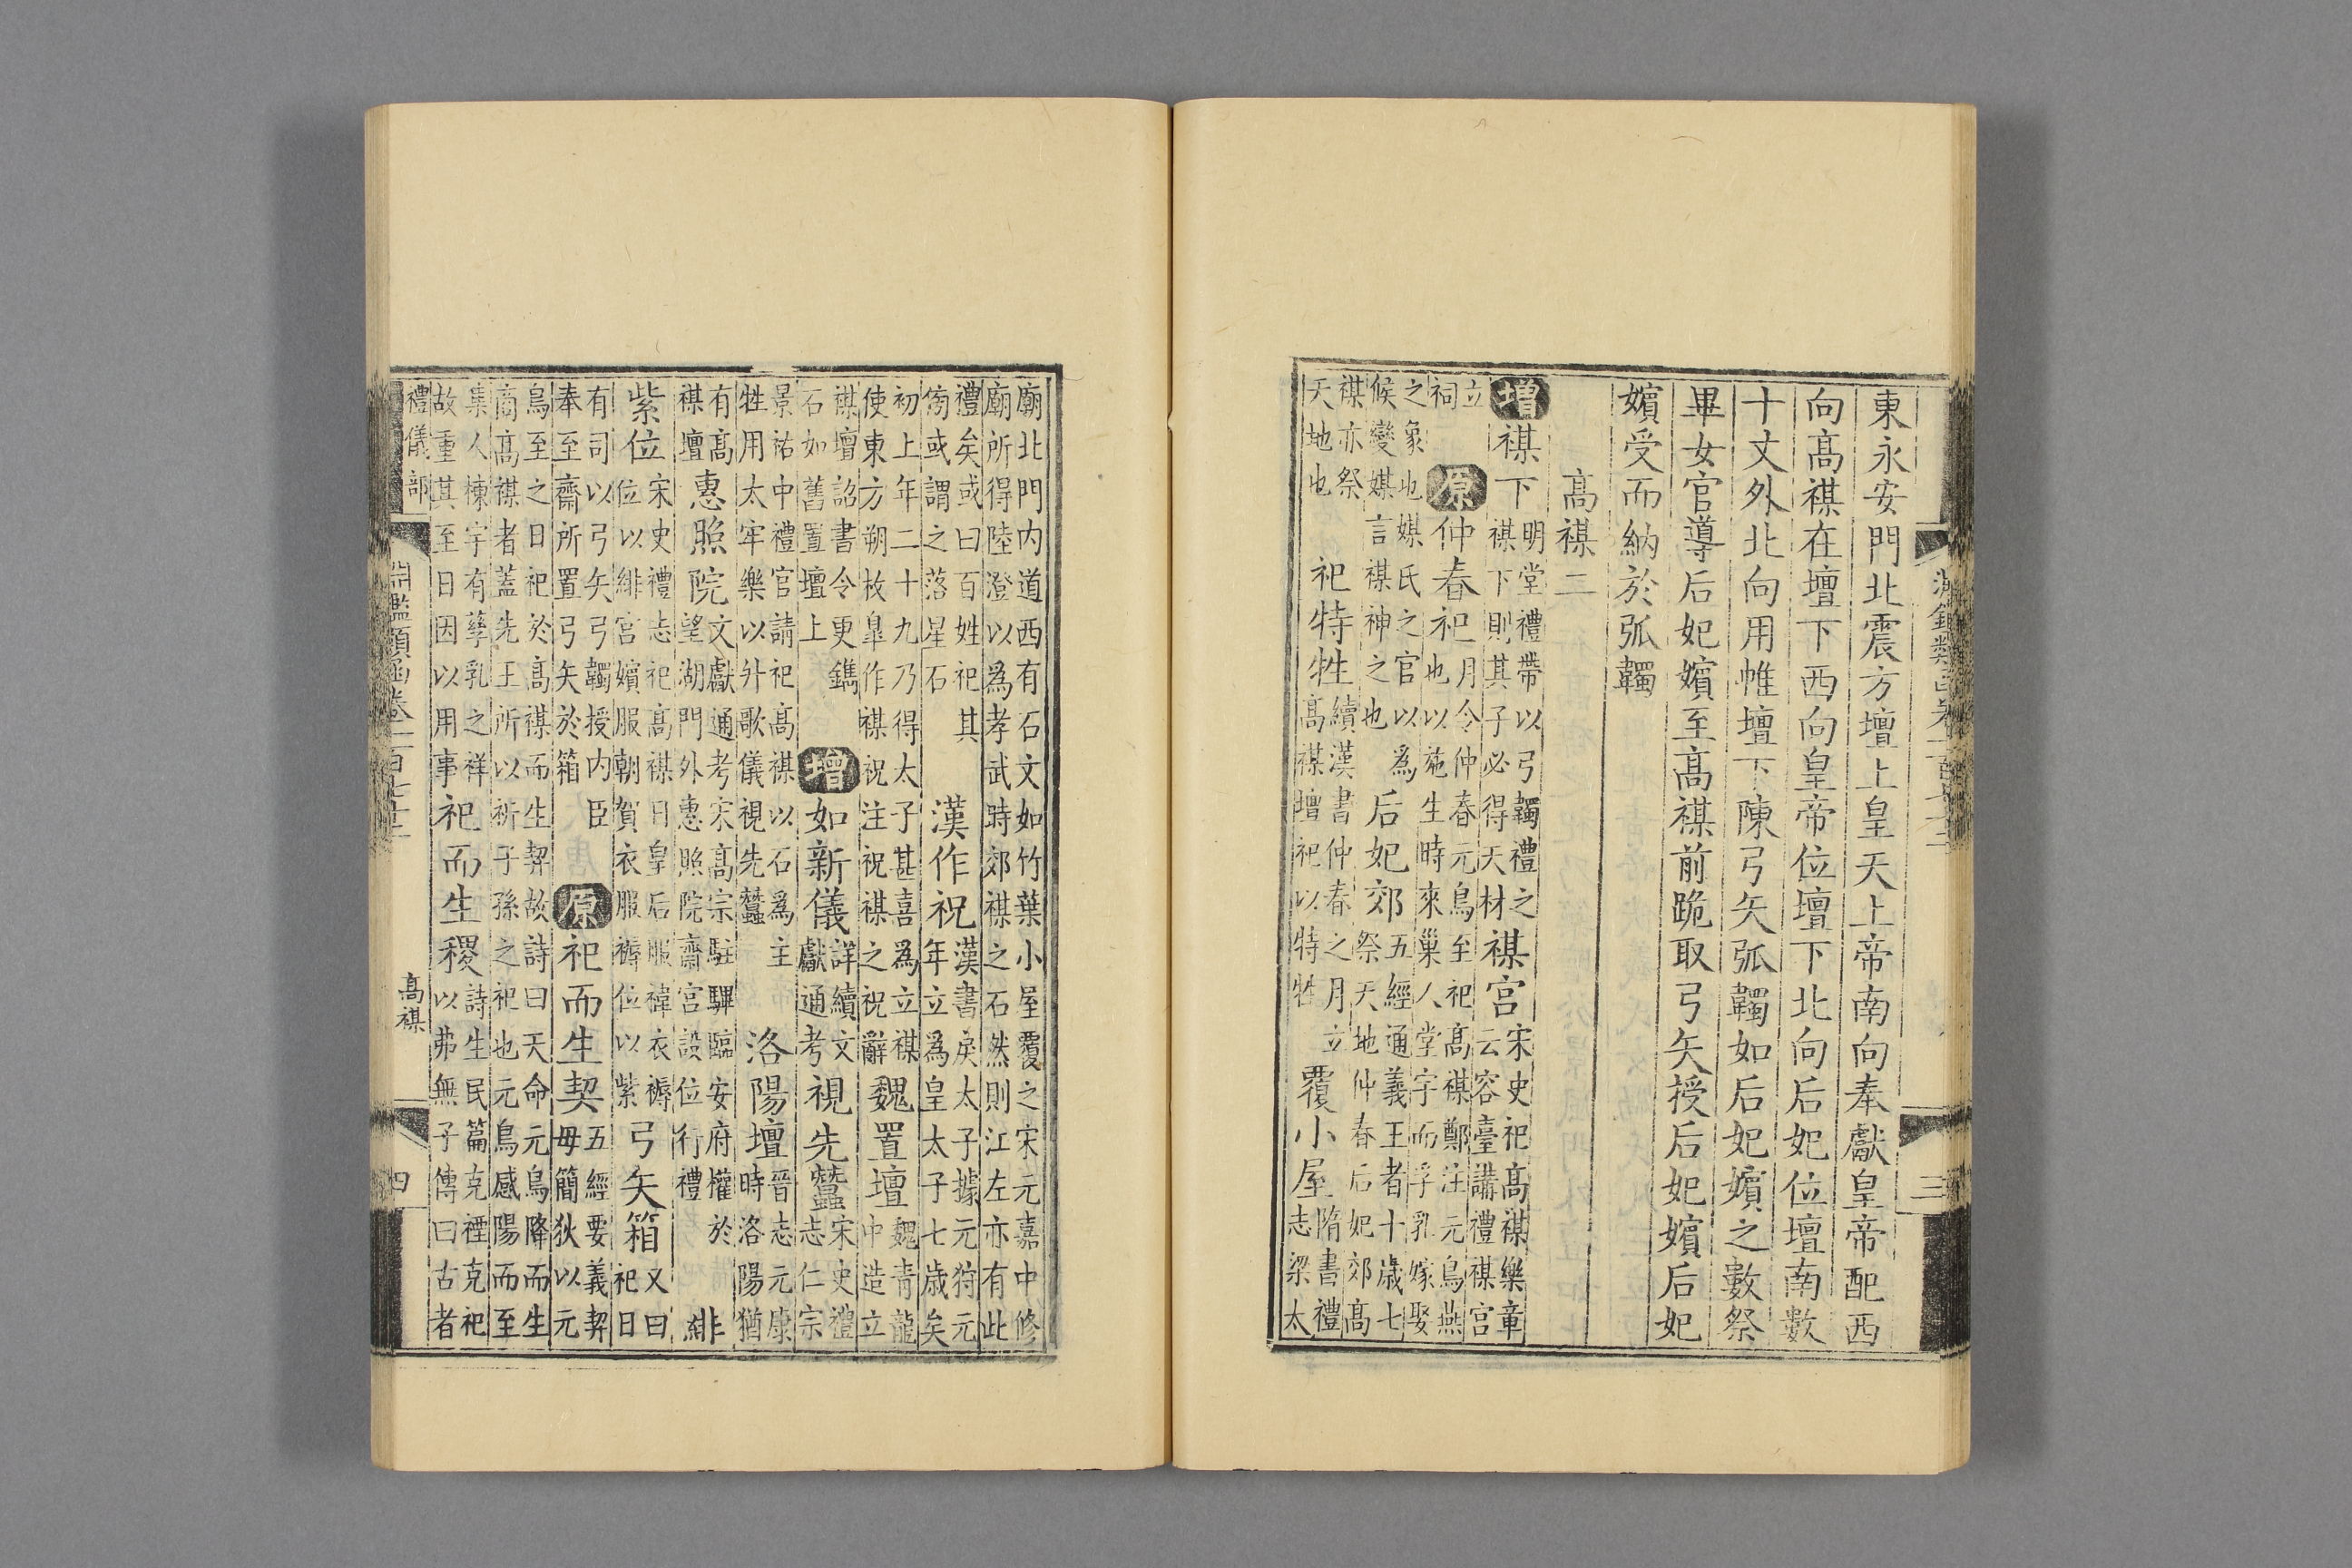 三
東永安門北震方壇上皇天上帝南向奉獻皇帝配西
向高禖在壇下西向皇帝位壇下北向后妃位壇南數
十丈外北向用帷壇下陳弓矢弧韣如后妃嬪之數祭
畢女官導后妃嬪至高禖前跪取弓矢授后妃嬪后妃
嬪受而納於弧韣
高禖二
增禖下明堂禮帶以弓韣禮之禖下則其子必得天材禖宮宋史祀高禖樂章云容臺講禮禖宮
立祠原仲春祀月令仲春元鳥至祀高禖鄭注元鳥燕也以施生時來巢人堂宇而孚乳嫁娶
之象也媒氏之官以為候變媒言禖神之也后妃郊五經通義王者十歲七祭天地仲春后妃郊高
禖亦祭天地也祀特牲續漢書仲春之月立高禖壇祀以特牲覆小屋隋書禮志梁太
廟北門内道西有石文如竹葉小屋覆之宋元嘉中修廟所得陸澄以為孝武時郊禖之石然則江左亦有此
禮矣或曰百姓祀其傍或謂之落星石漢作祝漢書戾太子據元狩元年立為皇太子七歲矣
初上年二十九乃得太子甚喜為立禖使東方朔枚臯作禖祝注祝禖之祝辭魏置壇魏青龍中造立
禖壇詔書令更鐫石如舊置壇上增如新儀詳續文獻通考視先蠶宋史禮志仁宗
景祐中禮官請祀高禖以石為主牲用太牢樂以升歌儀視先蠶洛陽壇晉志元康時洛陽猶
有高禖壇惠照院文獻通考宋高宗駐驆臨安府權於望湖門外惠照院齋宮設位行禮緋
紫位宋史禮志祀高禖日皇后服褘衣褥位以緋宮嬪服朝賀衣服褥位以紫弓矢箱又曰祀日
有司以弓矢弓韣授内臣奉至齋所置弓矢於箱原祀而生契五經要義契母簡狄以元
鳥至之日祀於高禖而生契故詩曰天命元鳥降而生商高禖者蓋先王所以祈子孫之祀也元鳥感陽而至
集人棟宇有孳乳之祥故重其至日因以用事祀而生稷詩生民篇克禋克祀以弗無子傳曰古者
禮儀部
高禖
四